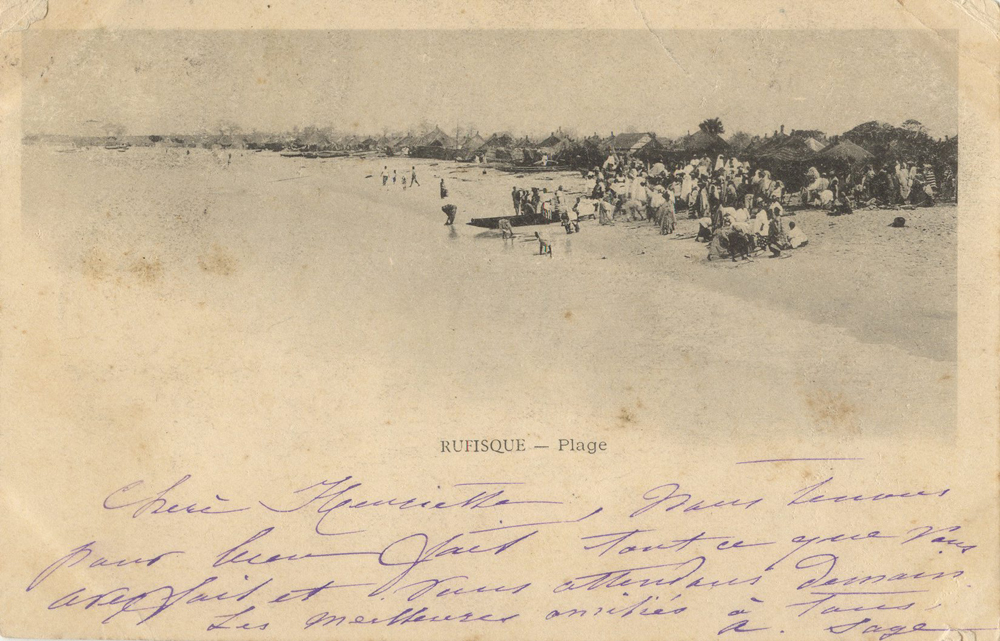 RUFISQUE — Plage
Chère Henriette, Nous tenons
pour bien fait tout ce que vous
avez fait et vous attendons demain.
Les meilleures amitiés à tous,
A. Sage